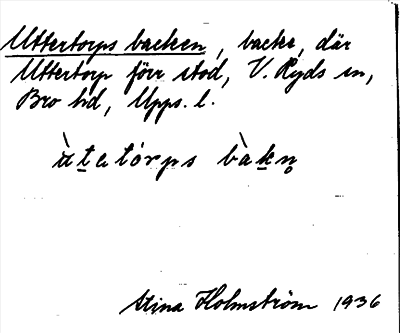 Uttertorps backen, backe, där
Uttertorp förr stod, V. Ryds sn,
Bro hd, Upps. l.
àtetórps bàkn̥
Stina Holmström 1936